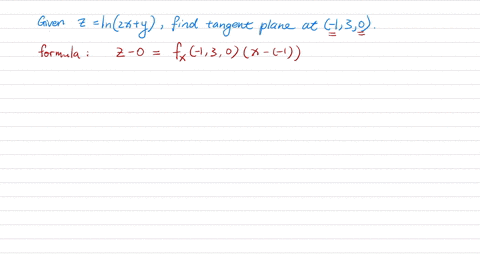 Given z = ln(2x+y), find tangent plane at (-1, 3, 0).
formula: z - 0 = fx (-1, 3, 0) (x - (-1))